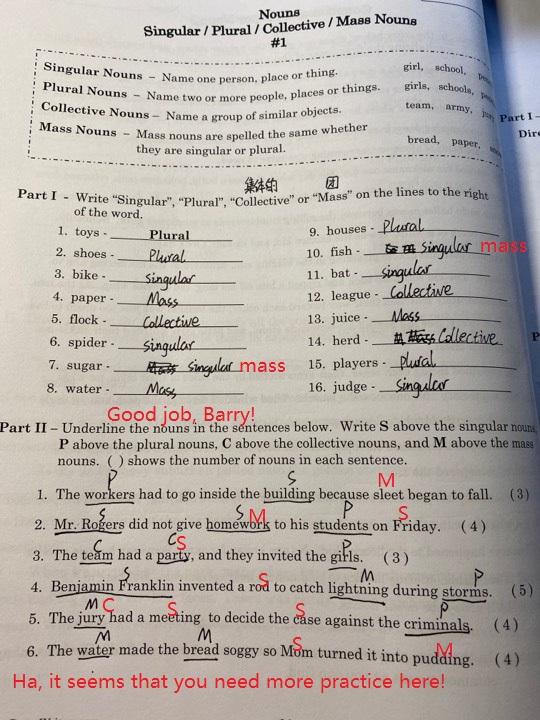 Nouns
Singular / Plural / Collective / Mass Nouns
#1
Singular Nouns – Name one person, place or thing. girl, school,
Plural Nouns – Name two or more people, places or things. girls, schools,
Collective Nouns – Name a group of similar objects. team, army,
Mass Nouns – Mass nouns are spelled the same whether bread, paper,
they are singular or plural.
Part I –
Dire
集体的 团
Part I - Write "Singular", "Plural", "Collective" or "Mass" on the lines to the right
of the word.
1. toys - Plural
2. shoes - Plural
3. bike - singular
4. paper - Mass
5. flock - Collective
6. spider - singular
7. sugar - singular mass
8. water - Mass
9. houses - Plural
10. fish - singular mass
11. bat - singular
12. league - Collective
13. juice - Mass
14. herd - Collective
15. players - Plural
16. judge - Singular
Good job, Barry!
Part II – Underline the nouns in the sentences below. Write S above the singular nouns,
P above the plural nouns, C above the collective nouns, and M above the mass
nouns. ( ) shows the number of nouns in each sentence.
P S M
1. The workers had to go inside the building because sleet began to fall. (3)
S S M P S
2. Mr. Rogers did not give homework to his students on Friday. (4)
C C S P
3. The team had a party, and they invited the girls. (3)
S S M P
4. Benjamin Franklin invented a rod to catch lightning during storms. (5)
M C S S P
5. The jury had a meeting to decide the case against the criminals. (4)
M M S M
6. The water made the bread soggy so Mom turned it into pudding. (4)
Ha, it seems that you need more practice here!